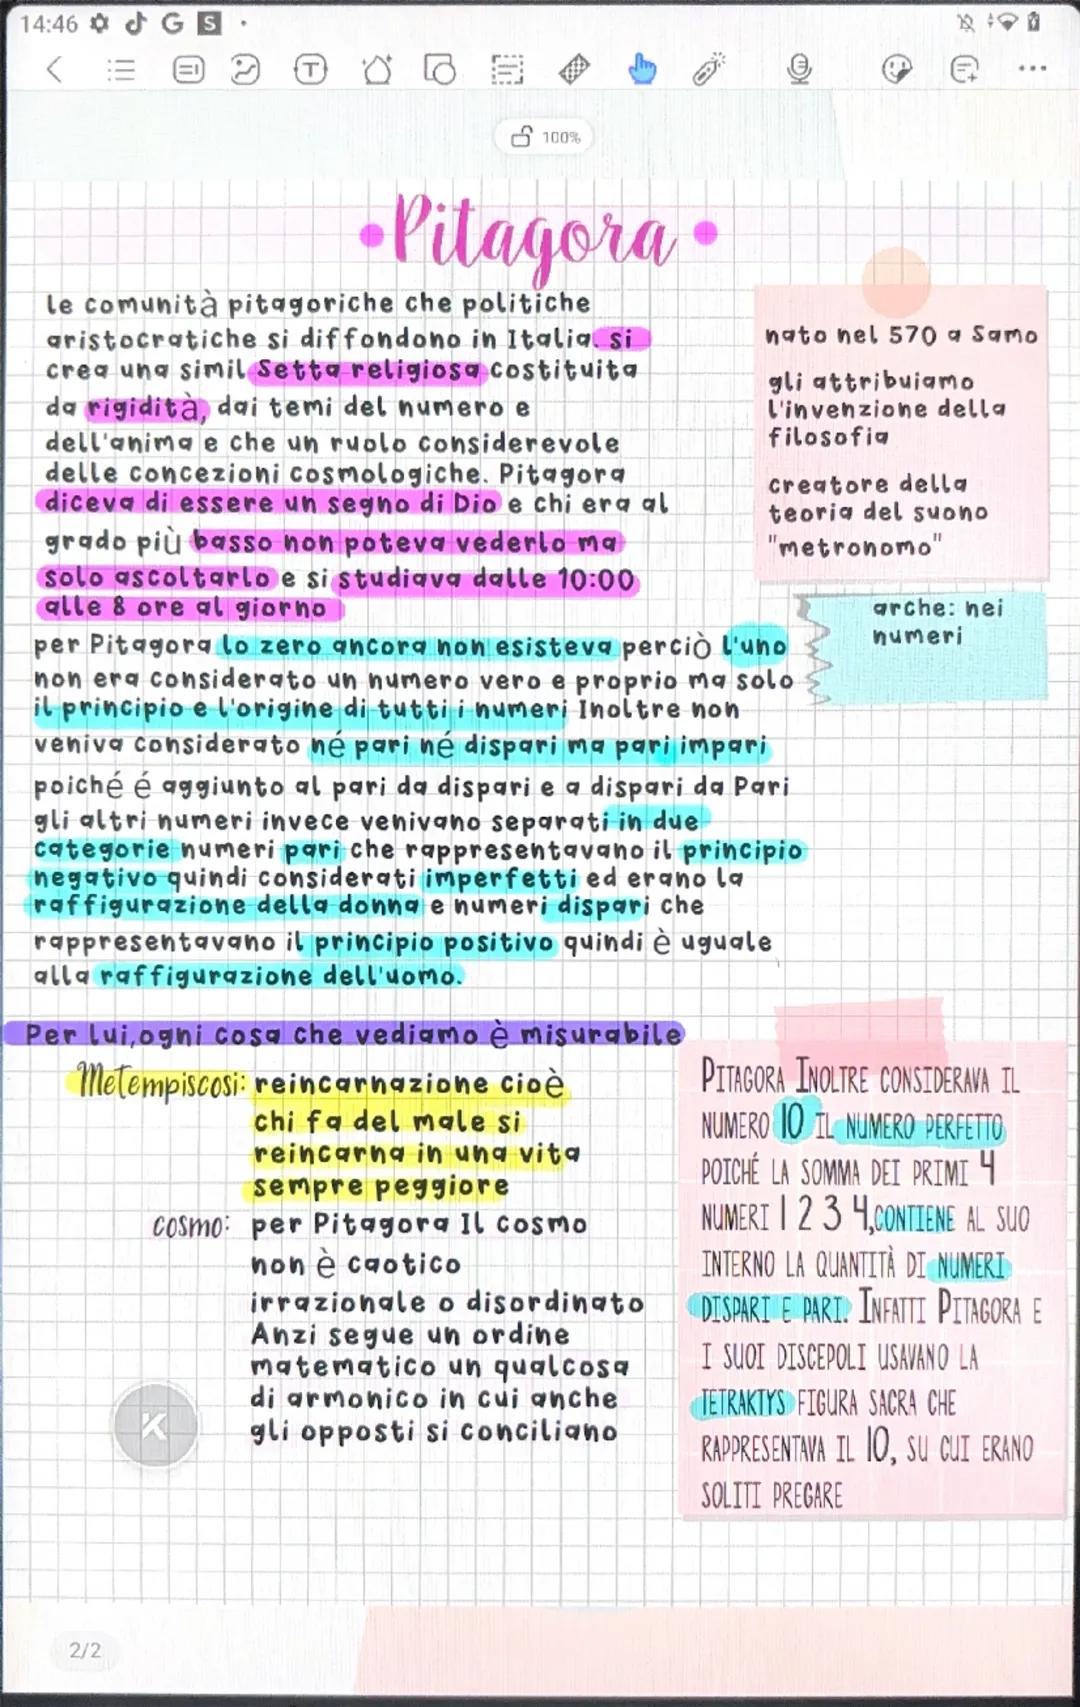 14:46
100%
Pitagora
le comunità pitagoriche che politiche
aristocratiche si diffondono in Italia. si
crea una simil Setta religiosa costituita
da rigidità, dai temi del numero e
dell'anima e che un ruolo considerevole
delle concezioni cosmologiche. Pitagora
diceva di essere un segno di Dio e chi era al
grado più basso non poteva vederlo ma
solo ascoltarlo e si studiava dalle 10:00
alle 8 ore al giorno
nato nel 570 a Samo
gli attribuiamo
l'invenzione della
filosofia
creatore della
teoria del suono
"metronomo"
arche: nei
numeri
per Pitagora lo zero ancora non esisteva perciò l'uno
non era considerato un numero vero e proprio ma solo
il principio e l'origine di tutti i numeri Inoltre non
veniva considerato né pari né dispari ma pari impari
poiché é aggiunto al pari da dispari e a dispari da Pari
gli altri numeri invece venivano separati in due
categorie numeri pari che rappresentavano il principio
negativo quindi considerati imperfetti ed erano la
raffigurazione della donna e numeri dispari che
rappresentavano il principio positivo quindi è uguale
alla raffigurazione dell'uomo.
Per lui,ogni cosa che vediamo è misurabile
Metempiscosi: reincarnazione cioè
chi fa del male si
reincarna in una vita
sempre peggiore
cosmo: per Pitagora Il cosmo
non è caotico
irrazionale o disordinato
Anzi segue un ordine
matematico un qualcosa
di armonico in cui anche
gli opposti si conciliano
PITAGORA INOLTRE CONSIDERAVA IL
NUMERO 10 IL NUMERO PERFETTO
POICHÉ LA SOMMA DEI PRIMI 4
NUMERI 1 2 3 4,CONTIENE AL SUO
INTERNO LA QUANTITÀ DI NUMERI
DISPARI E PARI. INFATTI PITAGORA E
I SUOI DISCEPOLI USAVANO LA
TETRAKTYS FIGURA SACRA CHE
RAPPRESENTAVA IL 10, SU CUI ERANO
SOLITI PREGARE
K
2/2